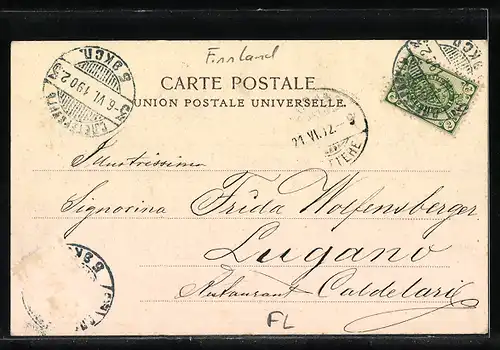 Finnland
CARTE POSTALE
UNION POSTALE UNIVERSELLE.
5 ЭКСП.
6 VI 1902
21 VI. 12.
Illustrissima
Signorina Frida Wolfensberger
Lugano
Restaurant Caldelari
FL